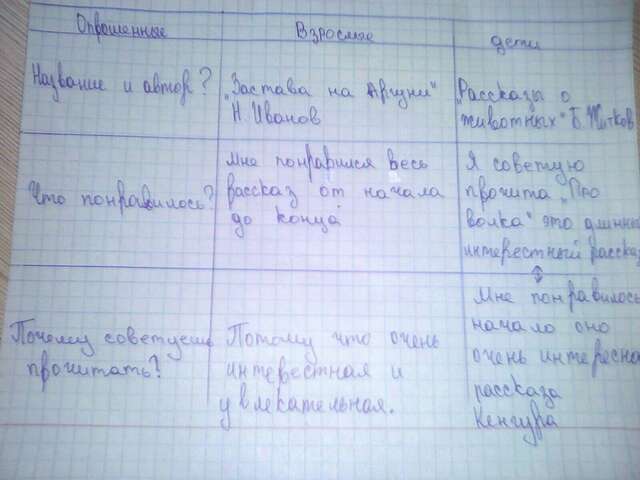 Опрошенные
Взрослые
дети
Название и автор?
„Застава на Аргуни"
Н. Иванов
„Рассказы о
животных" Б. Житков
Что понравилось?
Мне понравился весь
рассказ от начала
до конца
Я советую
прочита „Про
волка" это длинны
интерестный рассказ
Почему советуеш
прочитать?
Потому что очень
интевестная и
увлекательная.
Мне понравилось
начало оно
очень интересна
рассказа
Кенгура